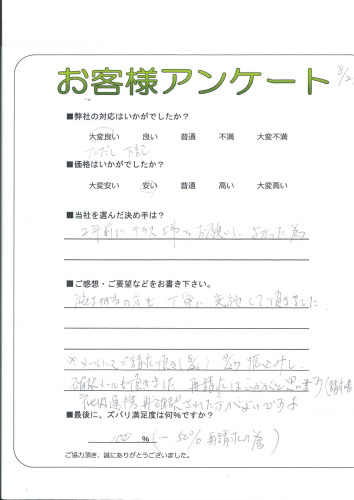 お客様アンケート
8/2
■弊社の対応はいかがでしたか？
大変良い 良い 普通 不満 大変不満
ただし 下記
■価格はいかがでしたか？
大変安い 安い 普通 高い 大変高い
■当社を選んだ決め手は？
2年前にテラス工事をお願いし よかった為
■ご感想・ご要望などをお書き下さい。
施工担当の方も丁寧に 実施して頂きました
※メールにてご請求頂き 振込みし
確認メールも頂きました 再請求はいかがと思います
社内連携再確認された方がよいですよ
■最後に、ズバリ満足度は何％ですか？
100 ％ (－50% 再請求の為)
ご協力頂き、誠にありがとうございました。